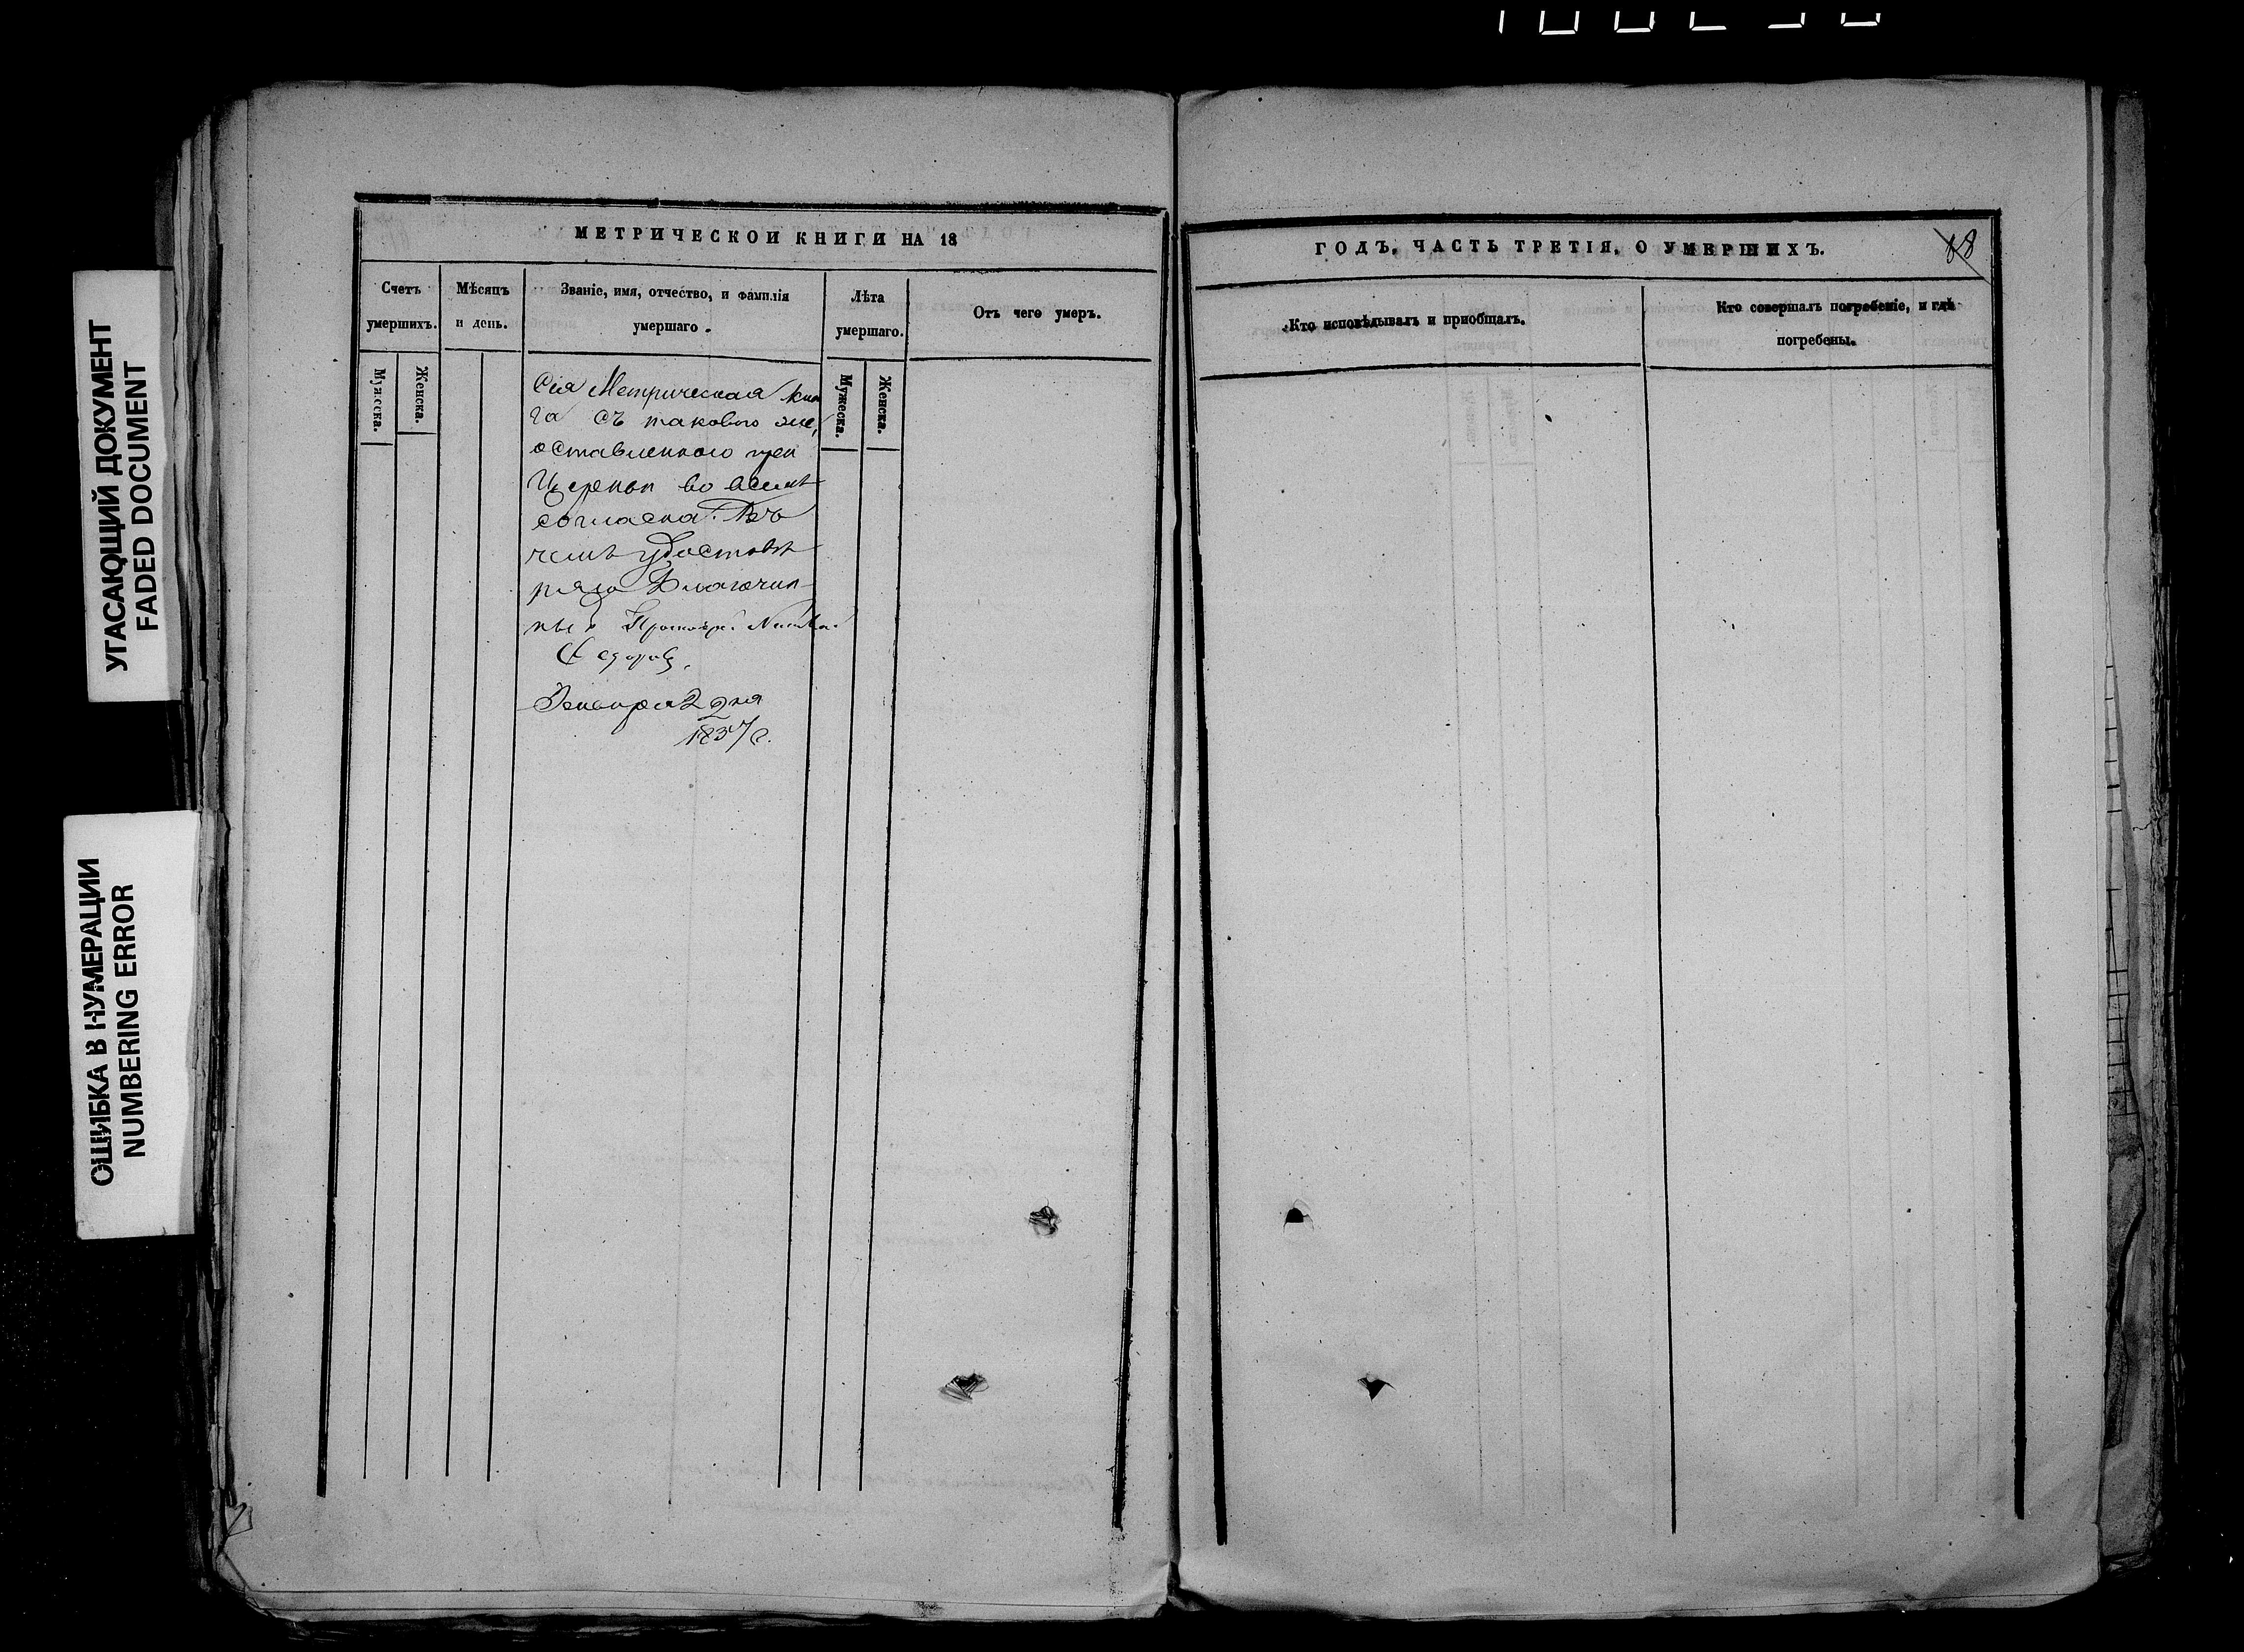 УГАСАЮЩИЙ ДОКУМЕНТ
FADED DOCUMENT
ОШИБКА В НУМЕРАЦИИ
NUMBERING ERROR
МЕТРИЧЕСКОЙ КНИГИ НА 18
Счетъ умершихъ.
Мужеска.
Женска.
Мѣсяцъ и день.
Званіе, имя, отчество, и фамилія умершаго.
Лѣта умершаго.
Мужеска.
Женска.
Отъ чего умеръ.
Сія Метрическая кни
га съ таковою же,
оставленною при
Церкви во всемъ
согласна. Въ
чемъ удостовѣ
ряю Благочин
ный
Федоровъ.
2 дня
1837 г.
ГОДЪ, ЧАСТЬ ТРЕТІЯ, О УМЕРШИХЪ.
88
Кто исповѣдывалъ и пріобщалъ.
Кто совершалъ погребеніе, и гдѣ погребены.